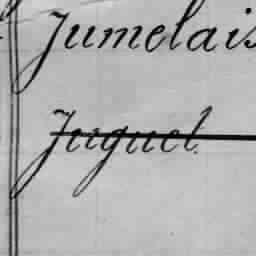 Jumelais
Juguel